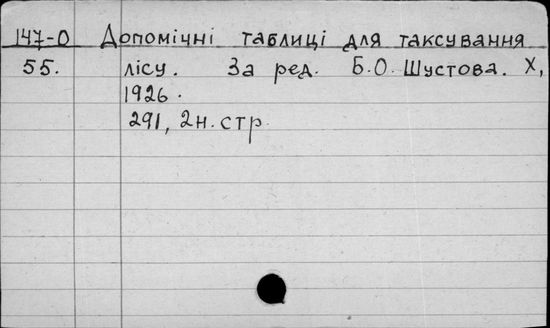 147-0 Допомічні таблиці для таксування
55. лісу. За ред. Б.О. Шустова. Х,
1926.
291, 2н. стр